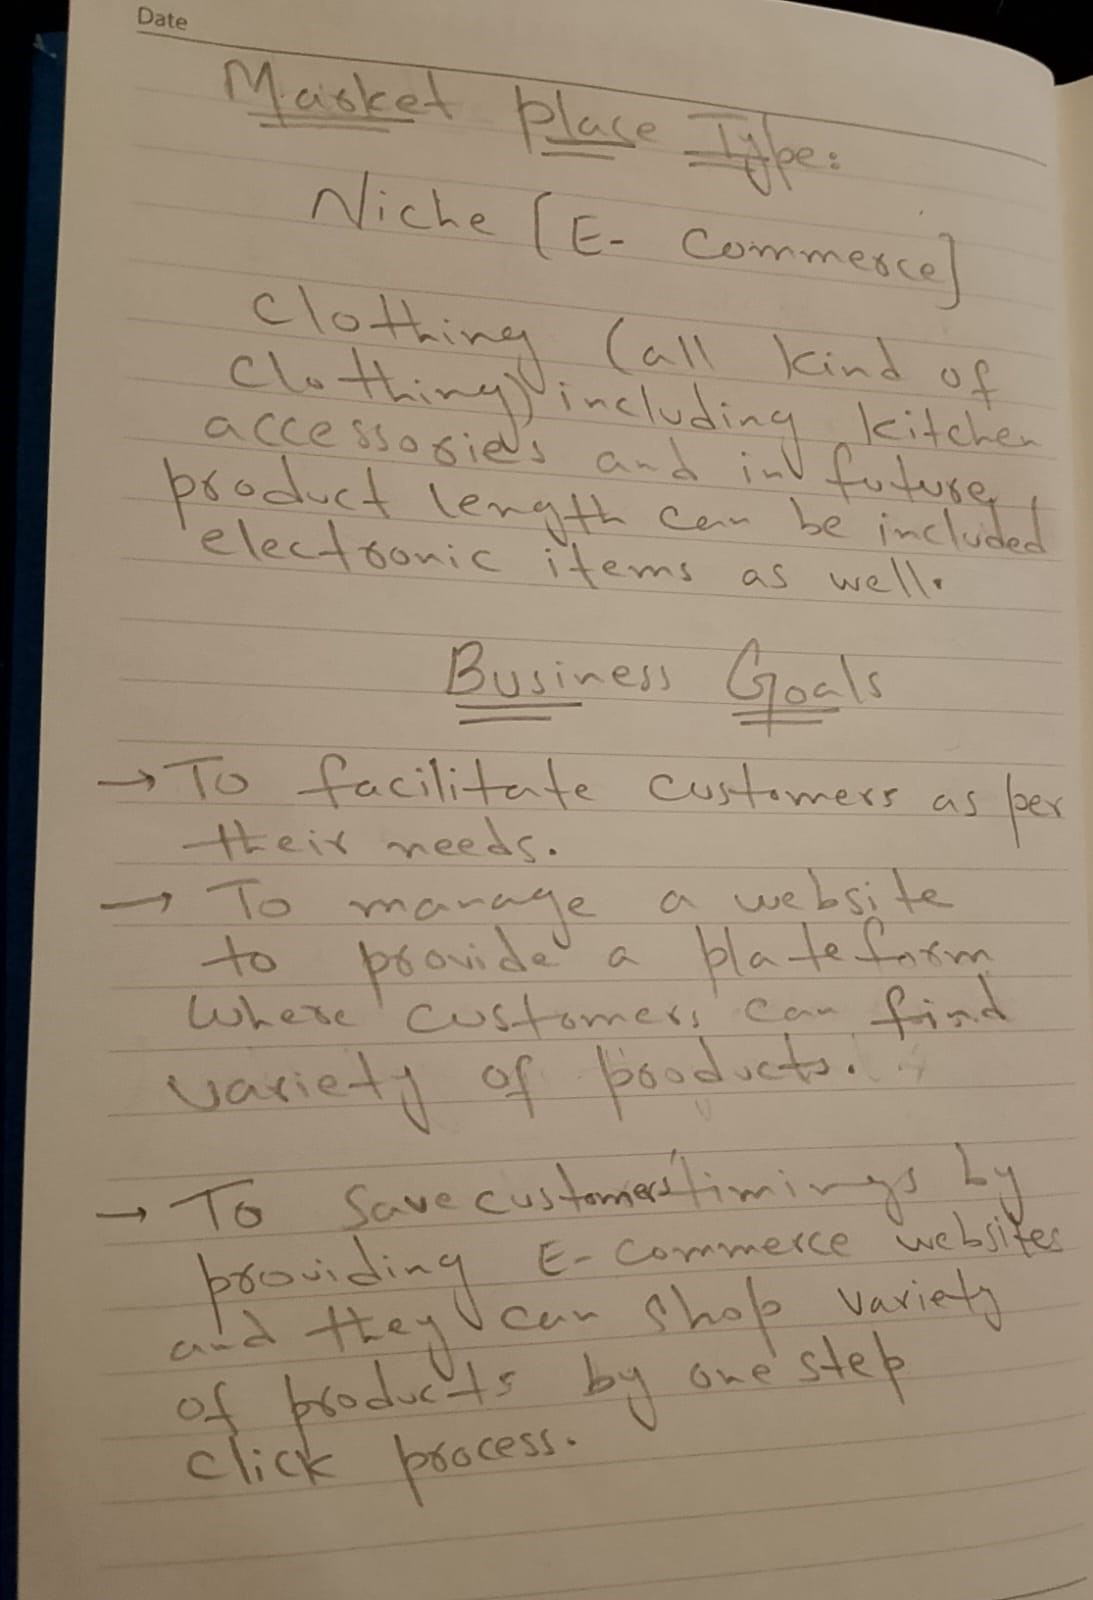 Date
Market place Type:
Niche [E- Commerce]
Clothing (all kind of
clothing) including kitchen
accessories and in future
product length can be included
electronic items as well.
Business Goals
→ To facilitate customers as per
their needs.
→ To manage a website
to provide a plateform
where customers can find
variety of products.
→ To save customers' timings by
providing E-commerce websites
and they can shop variety
of products by one step
click process.